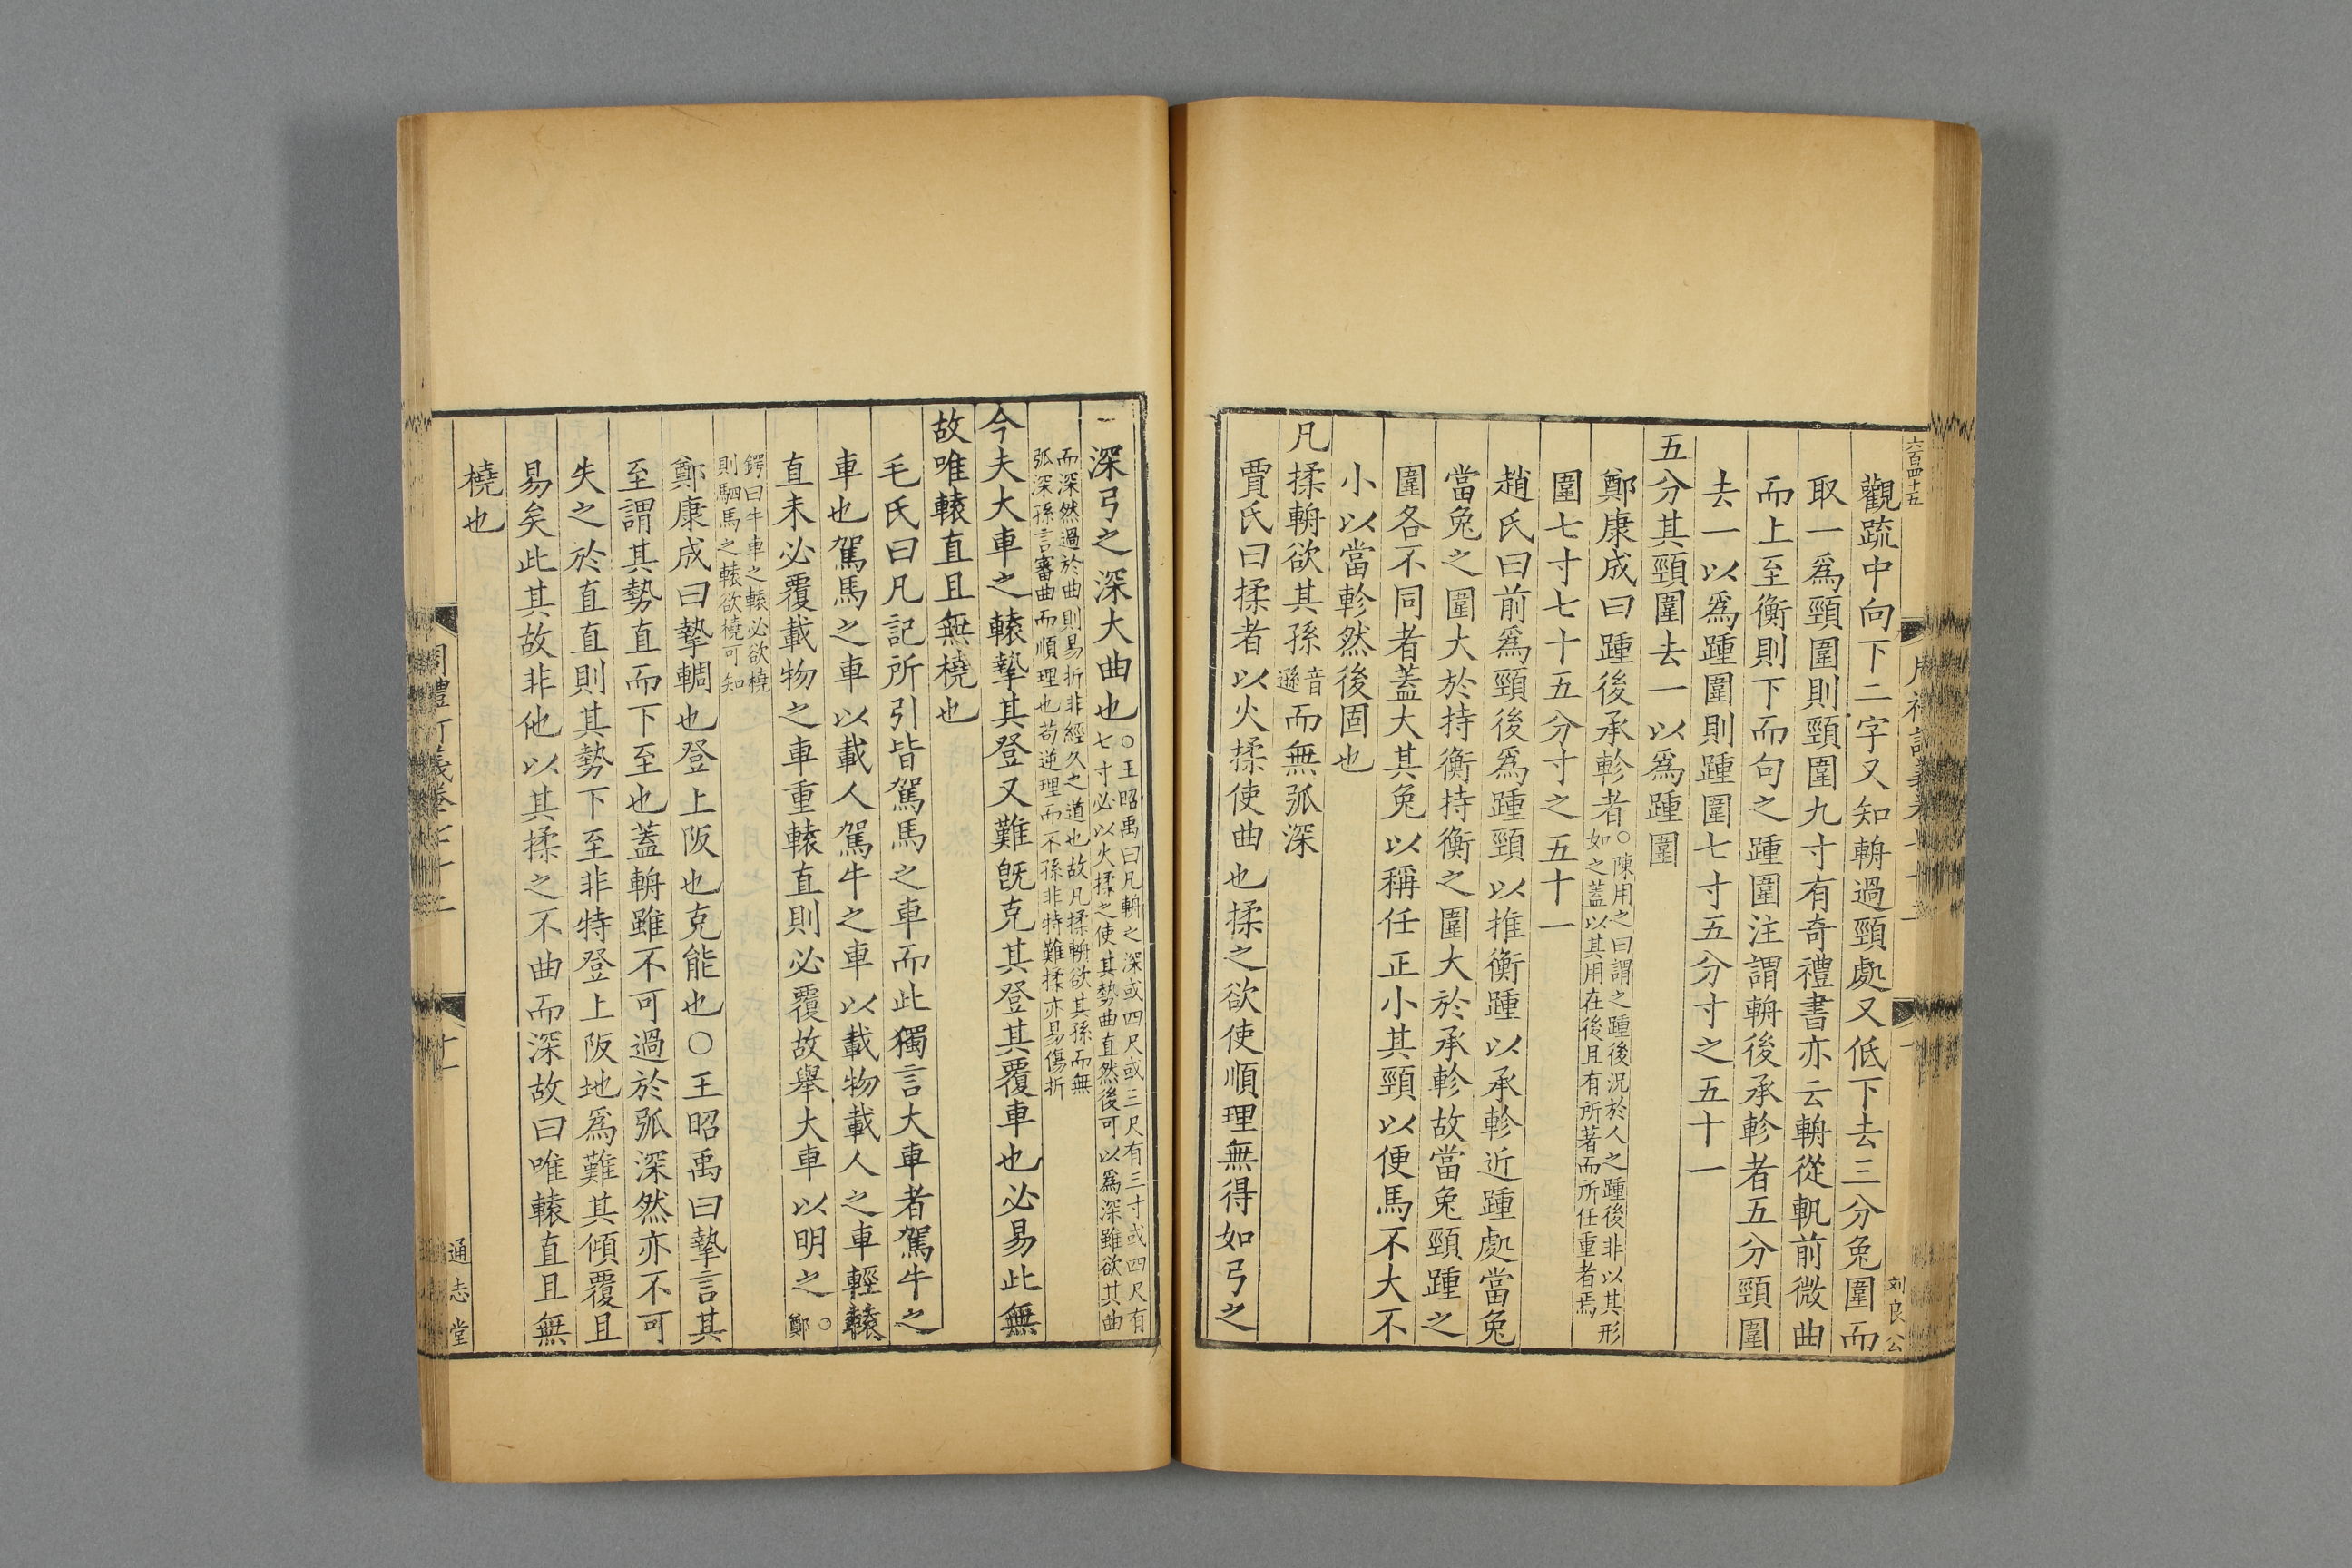 六百四十五
觀䟽中向下二字又知輈過頸處又低下去三分兔圍而
取一爲頸圍則頸圍九寸有奇禮書亦云輈從軓前微曲
而上至衡則下而句之踵圍注謂輈後承軫者五分頸圍
去一以爲踵圍則踵圍七寸五分寸之五十一
五分其頸圍去一以爲踵圍
鄭康成曰踵後承軫者○陳用之曰謂之踵後況於人之踵後非以其形
如之蓋以其用在後且有所著而所任重者焉
圍七寸七十五分寸之五十一
趙氏曰前爲頸後爲踵頸以推衡踵以承軫近踵處當兔
當兔之圍大於持衡持衡之圍大於承軫故當兔頸踵之
圍各不同者蓋大其兔以稱任正小其頸以便馬不大不
小以當軫然後固也
凡揉輈欲其孫音遜而無弧深
賈氏曰揉者以火揉使曲也揉之欲使順理無得如弓之
刘良公
深弓之深大曲也○王昭禹曰凡輈之深或四尺或三尺有三寸或四尺有
七寸必以火揉之使其勢曲直然後可以爲深雖欲其曲
而深然過於曲則易折非經久之道也故凡揉輈欲其孫而無
弧深孫言審曲而順理也苟逆理而不孫非特難揉亦易傷折
今夫大車之轅摯其登又難旣克其登其覆車也必易此無
故唯轅直且無橈也
毛氏曰凡記所引皆駕馬之車而此獨言大車者駕牛之
車也駕馬之車以載人駕牛之車以載物載人之車輕轅
直未必覆載物之車重轅直則必覆故舉大車以明之○鄭
鍔曰牛車之轅必欲橈
則駟馬之轅欲橈可知
鄭康成曰摯輖也登上阪也克能也○王昭禹曰摯言其
至謂其勢直而下至也蓋輈雖不可過於弧深然亦不可
失之於直直則其勢下至非特登上阪地爲難其傾覆且
易矣此其故非他以其揉之不曲而深故曰唯轅直且無
橈也
通志堂